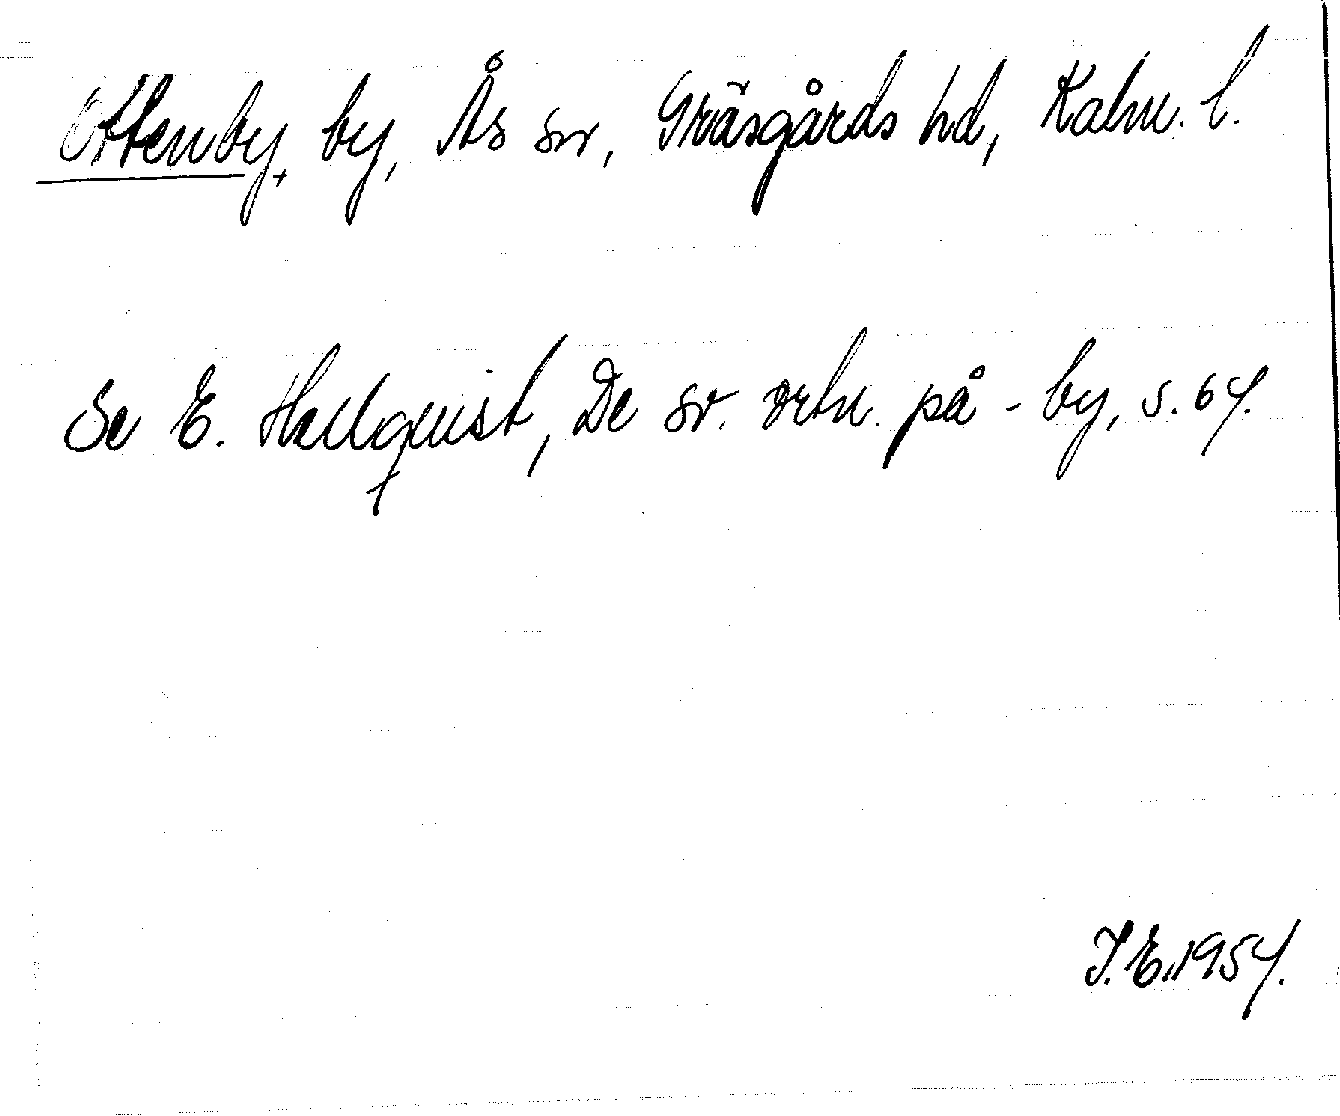 Ottenby, by, Ås sn, Gräsgårds hd, Kalm. l.
Se E. Hellquist, De sv. ortn. på -by, s. 64.
I. E. 1954.